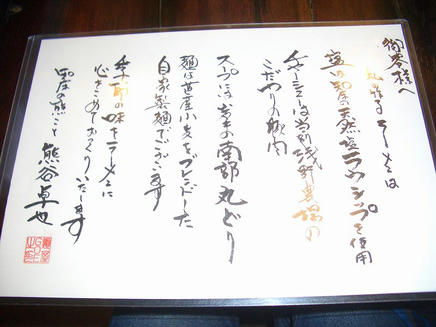 御客様へ
ラーメンは
塩は知床の天然塩ラウシップを使用
チャーシューは当別浅野農場の
こだわりの豚肉
スープには岩手の南部丸どり
麺は道産小麦をブレンドした
自家製麺でございます
季節の味をラーメンに
心をこめておつくりいたします
知床の熊こと 熊谷卓也